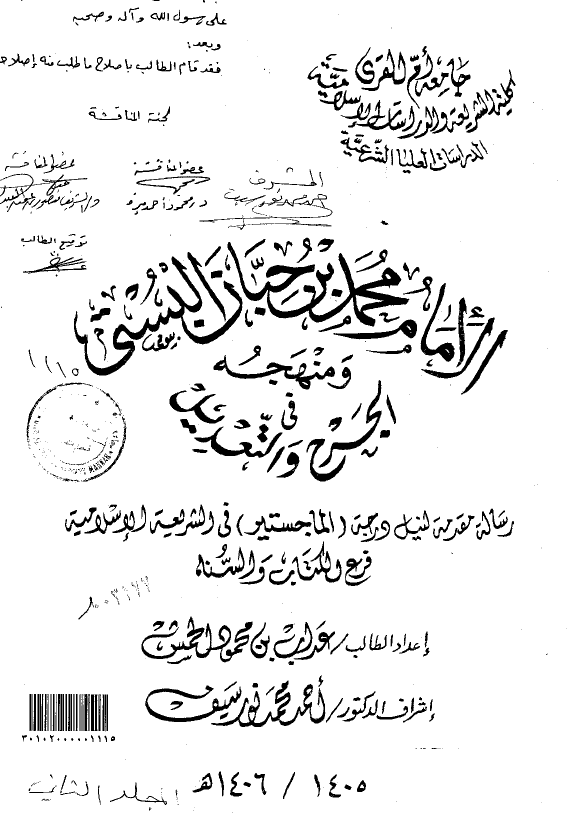 على رسول الله وآله وصحبه
وبعد:
فقد قام الطالب باصلاح ما طلب منه إصلاحه
لجنة المناقشة
جامعة أم القرى
كلية الشريعة والدراسات الإسلامية
الدراسات العليا الشرعية
المشرف
عضو المناقشة
عضو المناقشة
توقيع الطالب
الإمام محمد بن حبان البستي
ومنهجه
في
الجرح والتعديل
رسالة مقدمة لنيل درجة (الماجستير) في الشريعة الإسلامية
فرع الكتاب والسنة
إعداد الطالب / عداب بن محمود الحمش
إشراف الدكتور / أحمد محمد نور سيف
٣٠١٠٢٠٠٠٠٠١١١٥
١٤٠٥ / ١٤٠٦هـ
المجلد الثاني